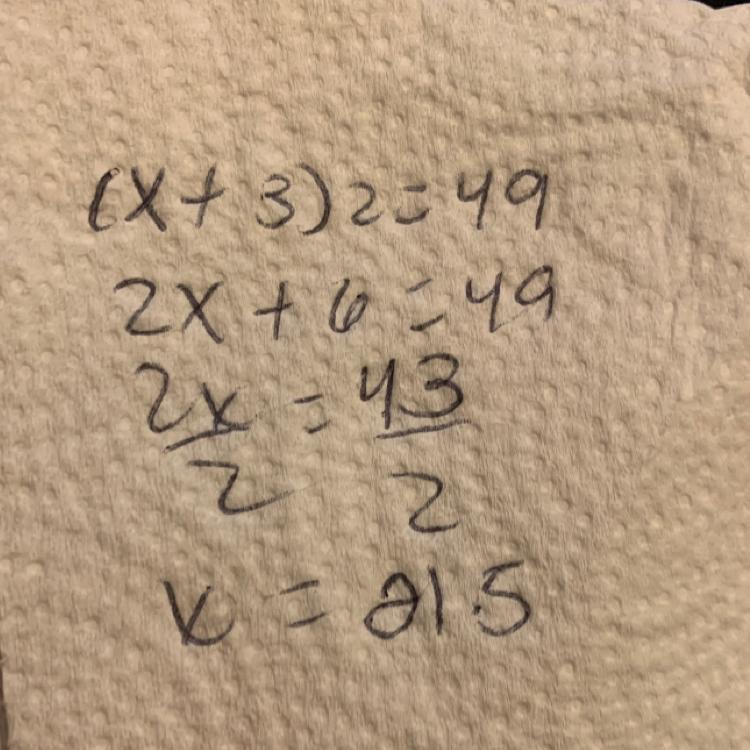 (x + 3)2 = 49
2x + 6 = 49
2x/2 = 43/2
x = 21.5